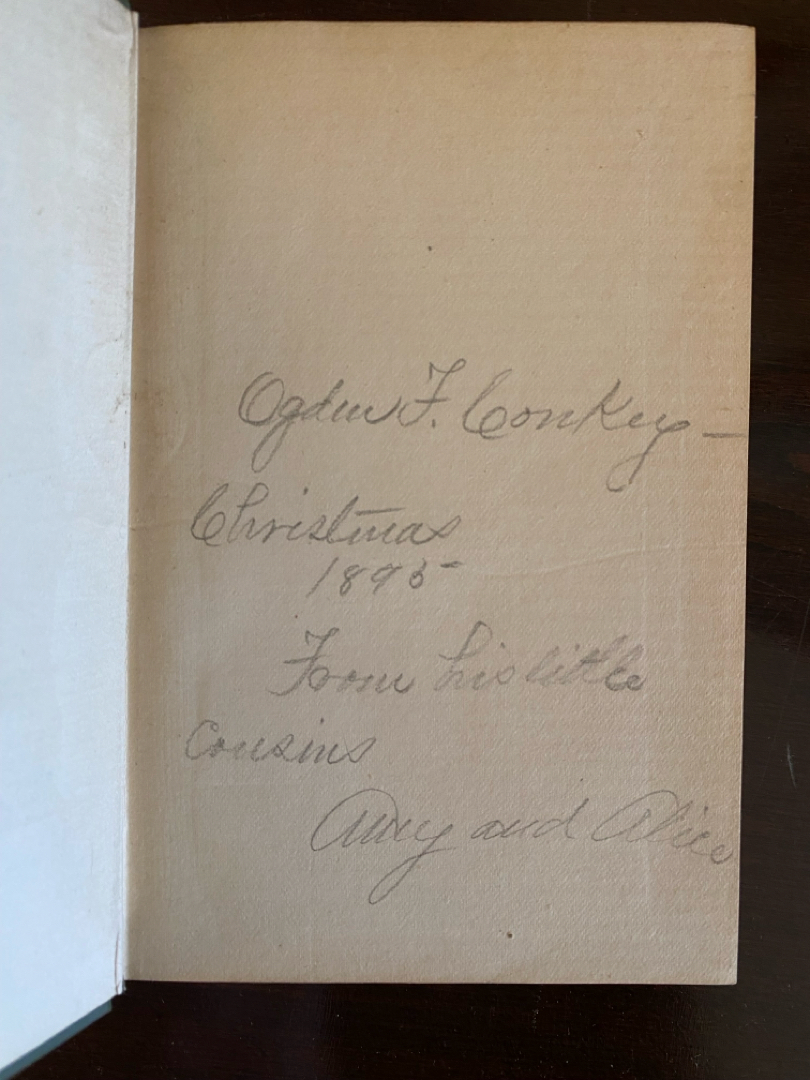 Ogden F. Conkey –
Christmas
1895
From his little
Cousins
Amy and Alice